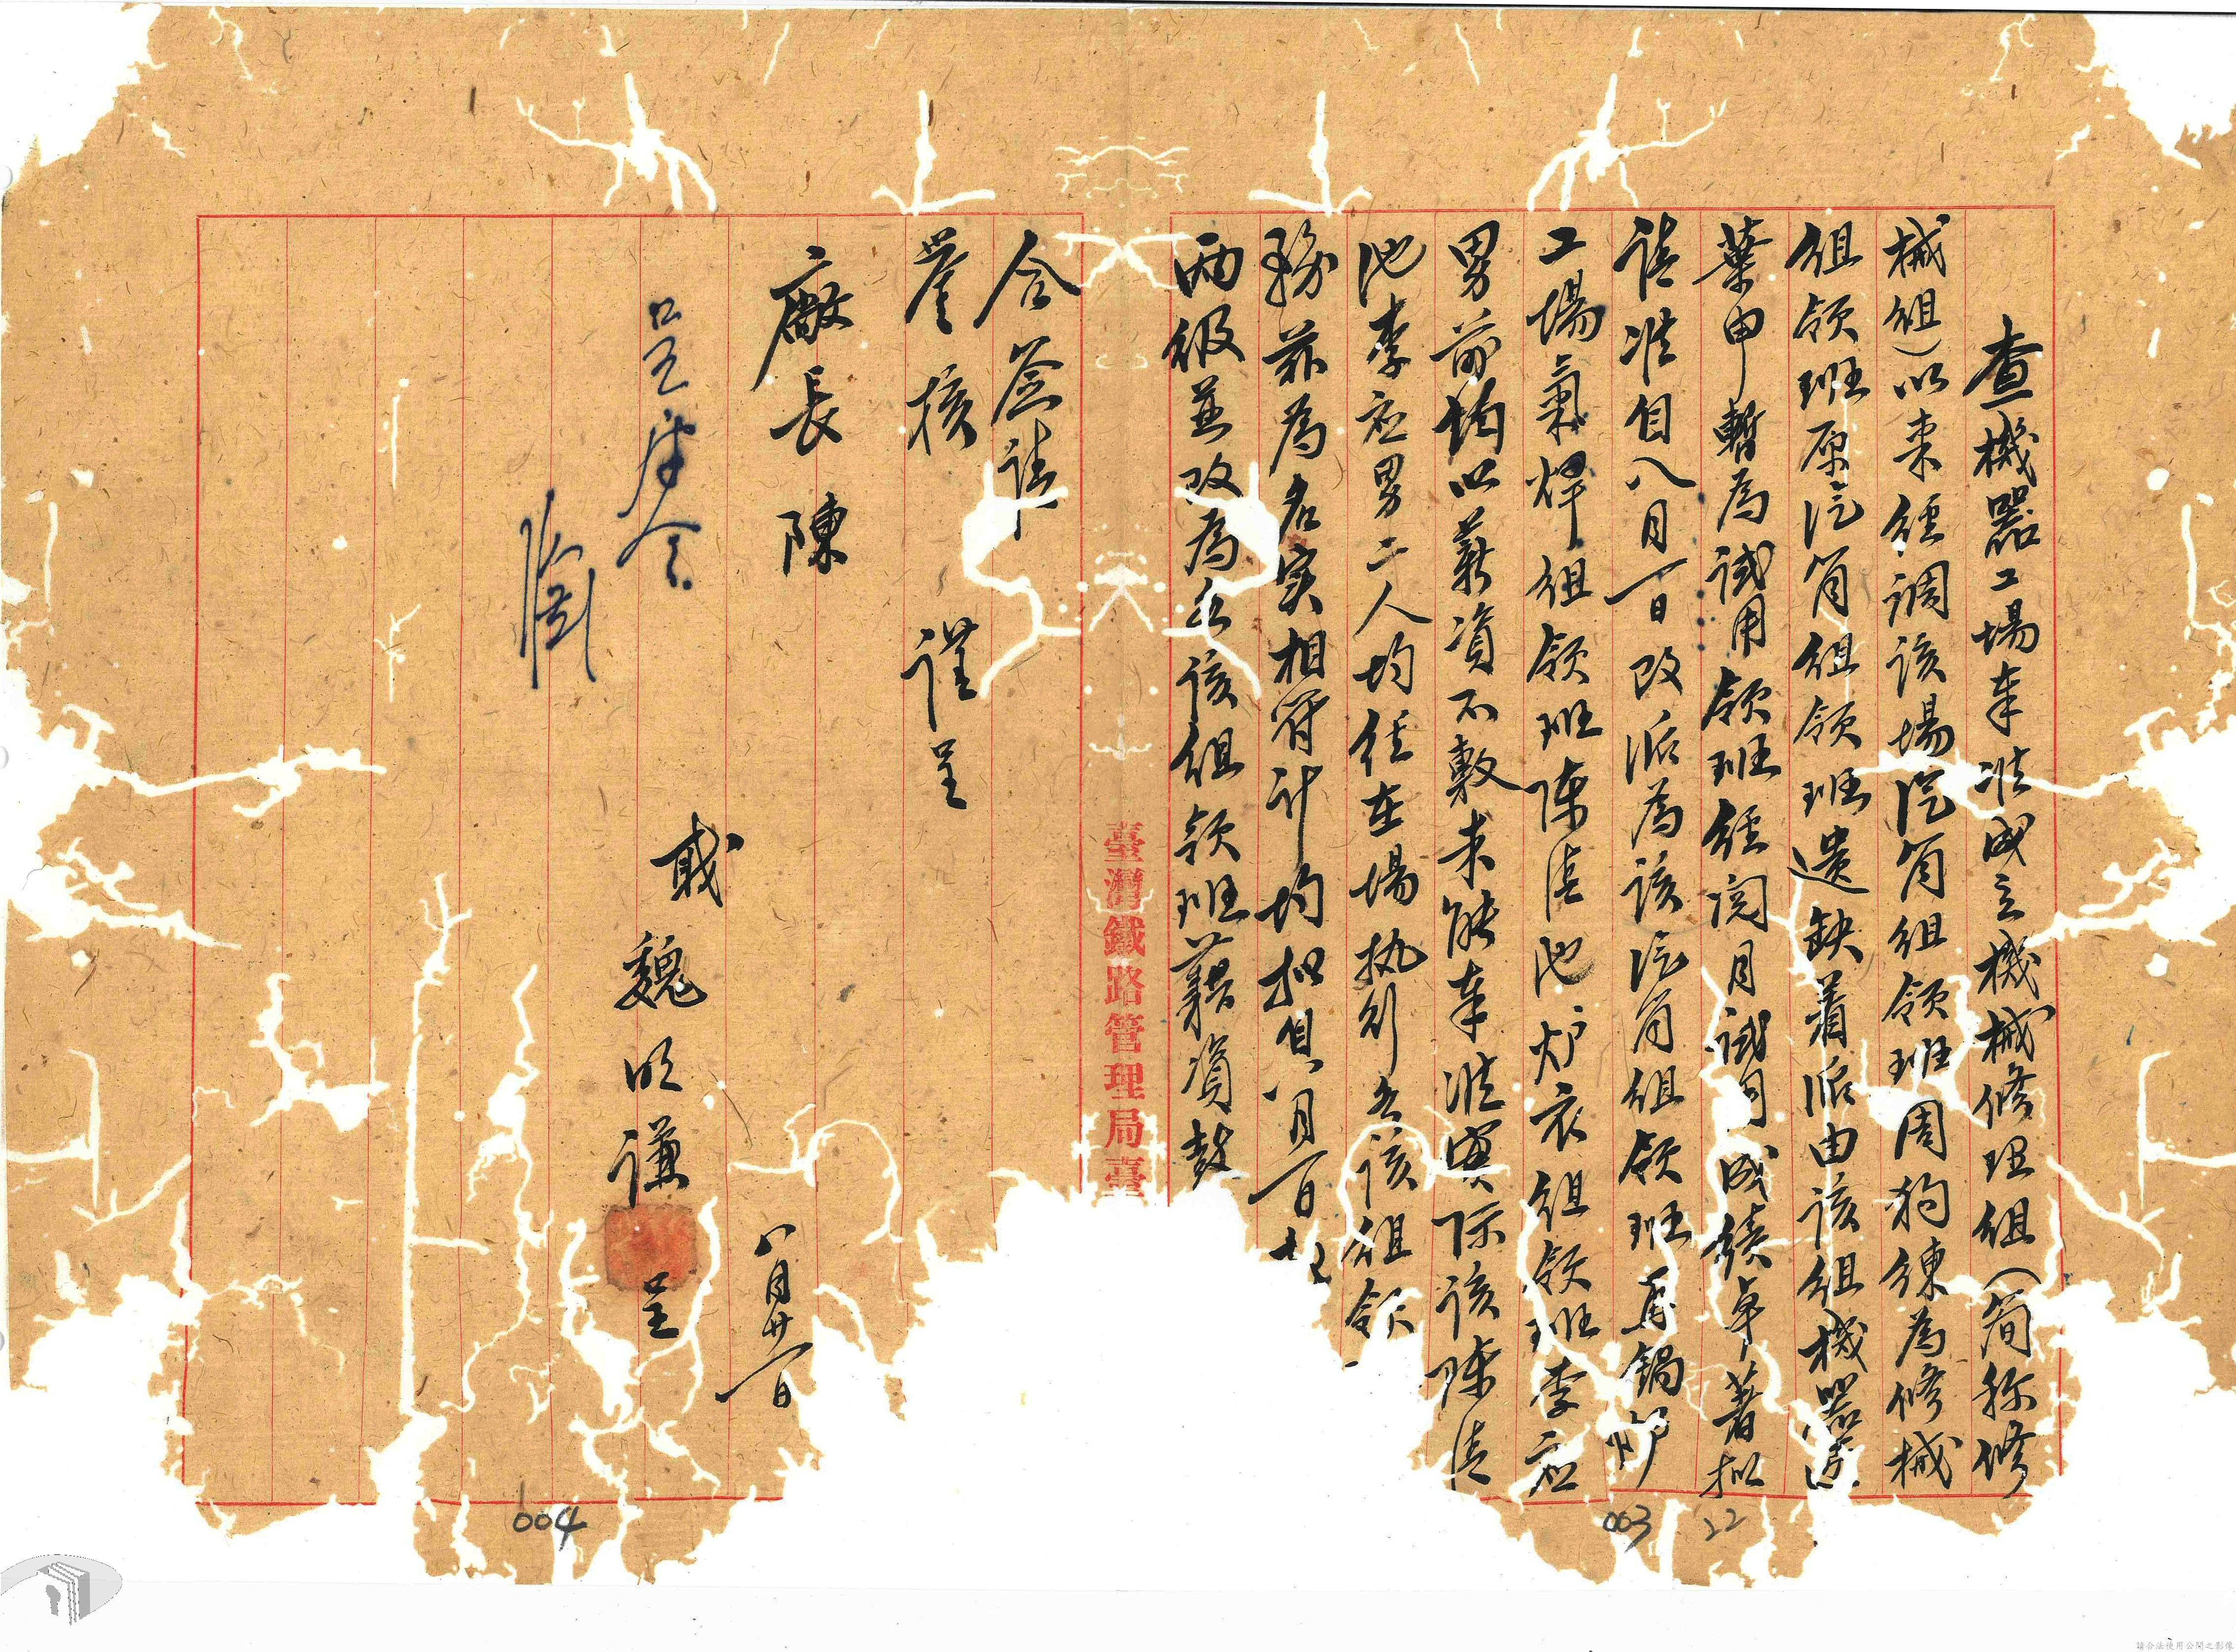 查機器工場奉准成立機械修理組(简称修
械組)以來經調該場汽筒組領班周狗練為修械
組領班原汽筒組領班遺缺着派由該組機器匠
葉申暫為試用領班經閱月試用成績卓著拟
請准自八月一日改派為該汽筒組領班再鍋炉
工場氣焊組領班陳信池炉衣組領班李应
男前均以薪資不敷未能奉准實际該陳信
池李应男二人均任在場执行各該組領
務茲為名实相符計均拟自八月一日起
两級並改為各該組領班藉資鼓
合簽請
詧核 謹呈
廠長 陳
職 魏明謙 呈
八月廿一日
呈請核令
臺灣鐵路管理局臺
004
003
22
請合法使用公開之影像